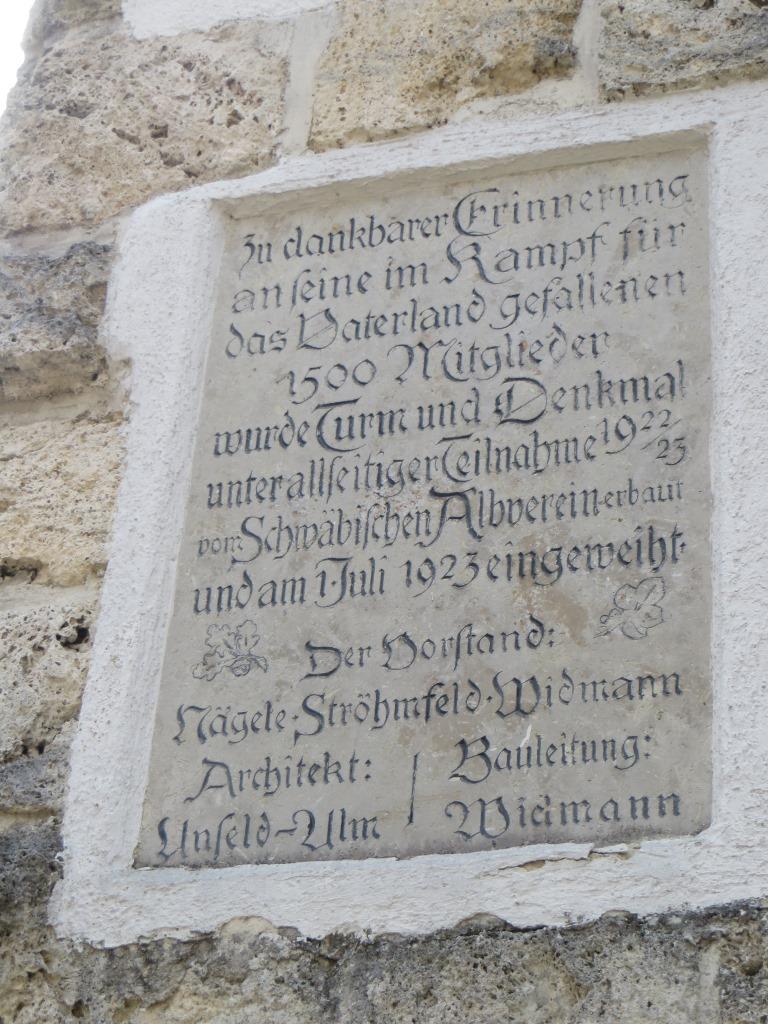 Zu dankbarer Erinnerung
an seine im Kampf für
das Vaterland gefallenen
1500 Mitglieder
wurde Turm und Denkmal
unter allseitiger Teilnahme 1922/23
vom Schwäbischen Albverein erbaut
und am 1. Juli 1923 eingeweiht.
Der Vorstand:
Nägele · Ströhmfeld · Widmann
Architekt: Bauleitung:
Unseld-Ulm Widmann